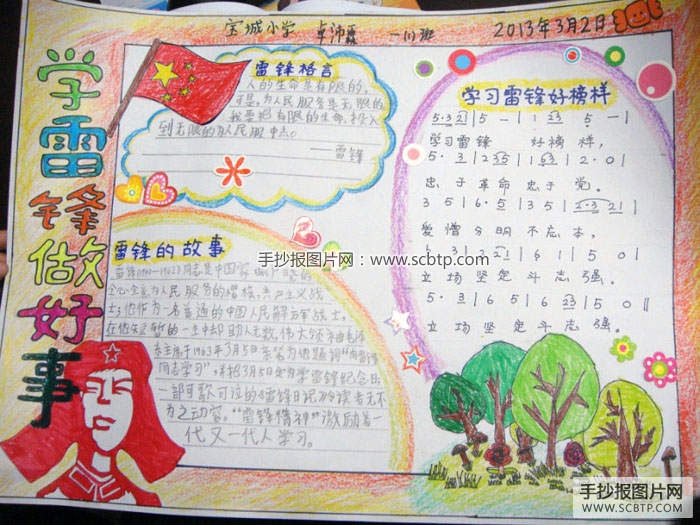 宝城小学 卓沛霖 一(1)班 2013年3月2日
学雷锋做好事
雷锋格言
人的生命是有限的，
可是，为人民服务是无限的
我要把有限的生命，投入
到无限的为人民服务中去。
——雷锋
学习雷锋好榜样
学习雷锋 好榜样，
忠于革命忠于党。
爱憎分明不忘本，
立场坚定斗志强。
立场坚定斗志强。
雷锋的故事
全心全意为人民服务的楷模，共产主义战
士；他作为一名普通的中国人民解放军战士，
在他短暂的一生中却助人无数，伟大领袖毛泽
东主席于1963年3月5日亲笔为他题词"向雷锋
同志学习"，并把3月5日定为学雷锋纪念日
一部可歌可泣的《雷锋日记》令读者无不
为之动容。"雷锋精神"激励着一
代又一代人学习。
手抄报图片网：www.scbtp.com
手抄报图片网
WWW.SCBTP.COM